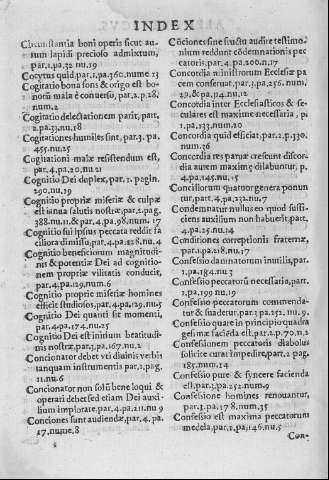 INDEX
Circunstantia boni operis sicut au-
rum lapidi precioso admixtum,
par.1.pa.32 nu.19
Cocytus quid.par.1.pa.360.nume 13
Cogitatio bona fons & origo est bo-
norũ mala ẽ conuerso, par.2.p.28.
num.2
Cogitatio delectationem parit, part.
2.pa.33.nu.18
Cogitationes humiles sint. par.3. pa.
455.nu.25
Cogitationi malæ resistendum est,
par.4.pa.20.nu.21
Cognitio Dei duplex, par.1. pagin.
290.nu.19
Cognitio propriæ miseriæ & culpæ
est ianua salutis nostræ, par.2.pag.
388.nu.11.& par.4.pa.98.num. 17
Cognitio sui ipsus peccata reddit fa
ciliora dimissu, par.4.pa.128.nu.4
Cognitio beneficiorum magnitudi-
nis & potentiæ Dei ad cognitio-
nem propriæ vilitatis conducit,
par.4.pa.129.num.6
Cognitio propriæ miseriæ homines
efficit studiosos, par.4.pa.129.nu.5
Cognitio Dei quanti sit momenti,
par.4.pa.174.nu.25
Cognitio Dei est initium beatitudi-
nis nostræ.par.3.pa.267.nu.2
Concionator debet vti diuinis verbis
tanquam instrumentis par.1.pag.
11.nu.6
Concionator non solũ bene loqui &
operari debet sed etiam Dei auxi-
lium implorare, par.4.pa.211.nu 9
Conciones sunt audiendæ, par.4. pa.
17.nume.8
Cõciones sine fructu audire testimo-
nium reddunt cõdemnationis pec
catoris, par.4.pa.200.n.17
Concordia ministrorum Ecclesiæ pa
cem conseruat.par.3.pa.256. num.
29.& pa.114.nu.12
Concordia inter Ecclesiasticos & se-
culares est maxime necessaria, p.
1.pa.133.num.20
Concordia quid efficiat.par.2.p.330.
num.26
Concordia res paruæ crescunt discor-
dia autem maximę dilabuntur, p.
4.pa.145.nu.15
Conciliorum quatuor genera ponun
tur, part.4.pa.232.nu.7
Condemnatur nullus eo quod suffi-
ciens auxilium non habuerit.part.
4.pa.25.nu.14
Conditiones correptionis fraternæ,
par.1.pa.218.nu.17
Confessio damnatorum inutilis, par.
1.pa.184.nu 3
Confessio peccatorũ necessaria, part.
1.pa.199.nu 19
Confessio peccatorum commenda-
tur & suadetur.par.3.pa.251.nu.9.
Confessio quare in principio quadra
gesimæ facienda est.par.2.p.70.n.2
Confessionem peccatoris diabolus
solicite curat impedire, part.2 pag.
185.num.14
Confessio pure & syncere facienda
est.par.3.pa.252.num.9
Confessione homines renouantur,
par.3.pa.178.num.35
Confessio est maxima peccatorum
medela, par.1.pa.146.nu.5
Con-